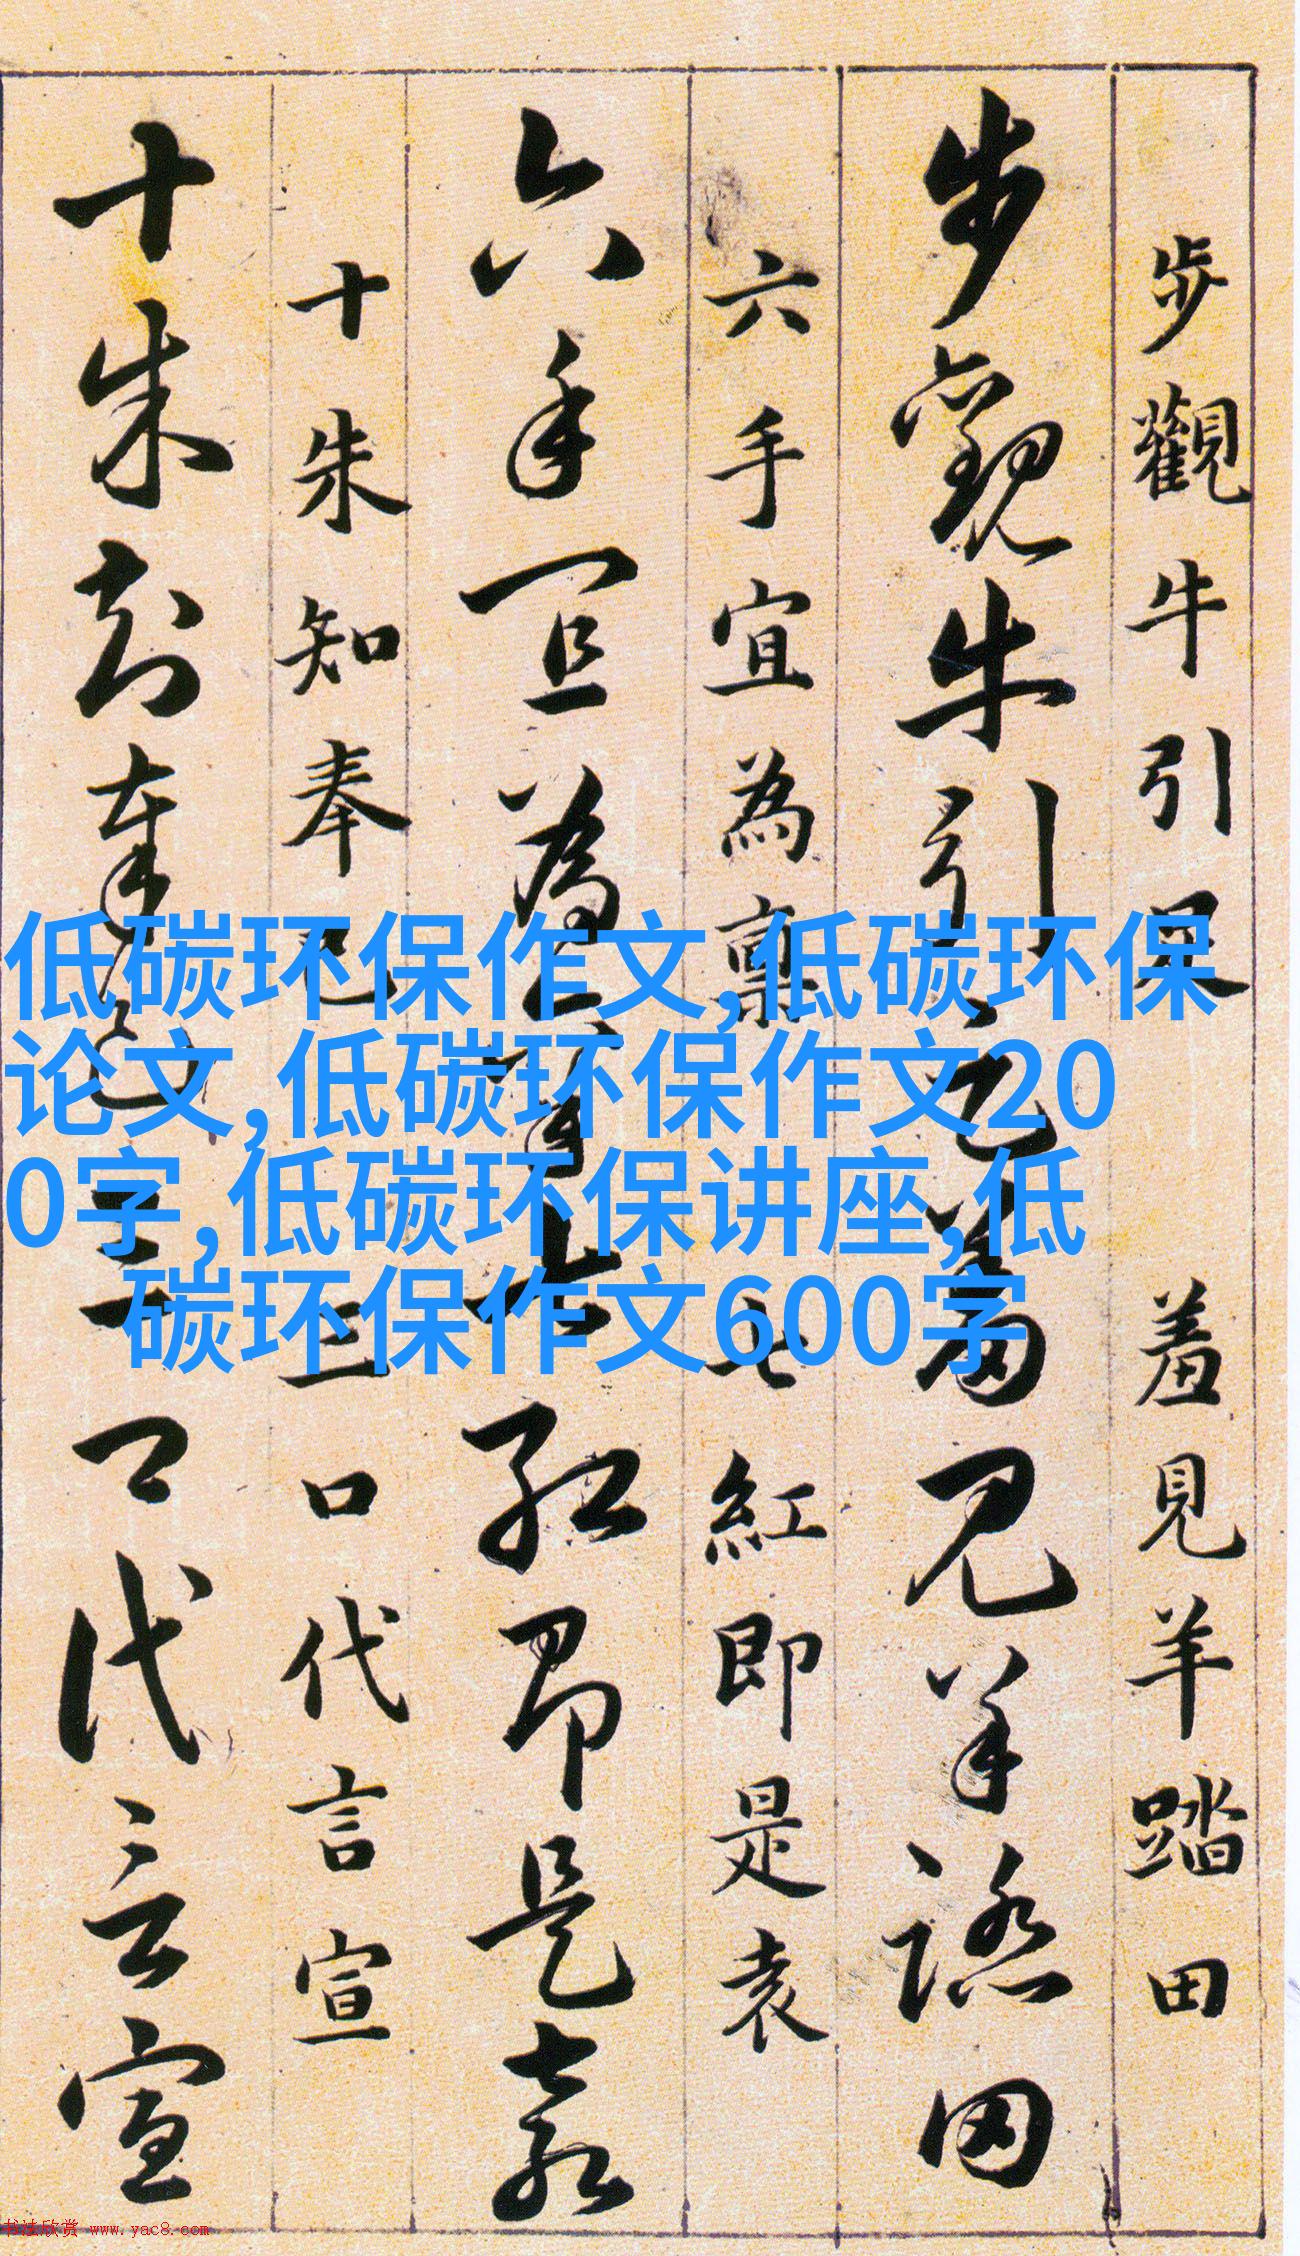 步觀牛引足羞見羊踏田
步觀牛引足羞見羊踏田
六手宜為稟七紅即是袁
六手宜為稟七紅即是袁
十朱知奉已三口代言宣
十朱知奉已三口代言宣
低碳环保作文,低碳环保
论文,低碳环保作文20
0字,低碳环保讲座,低
碳环保作文600字
书法欣赏 www.yac8.com